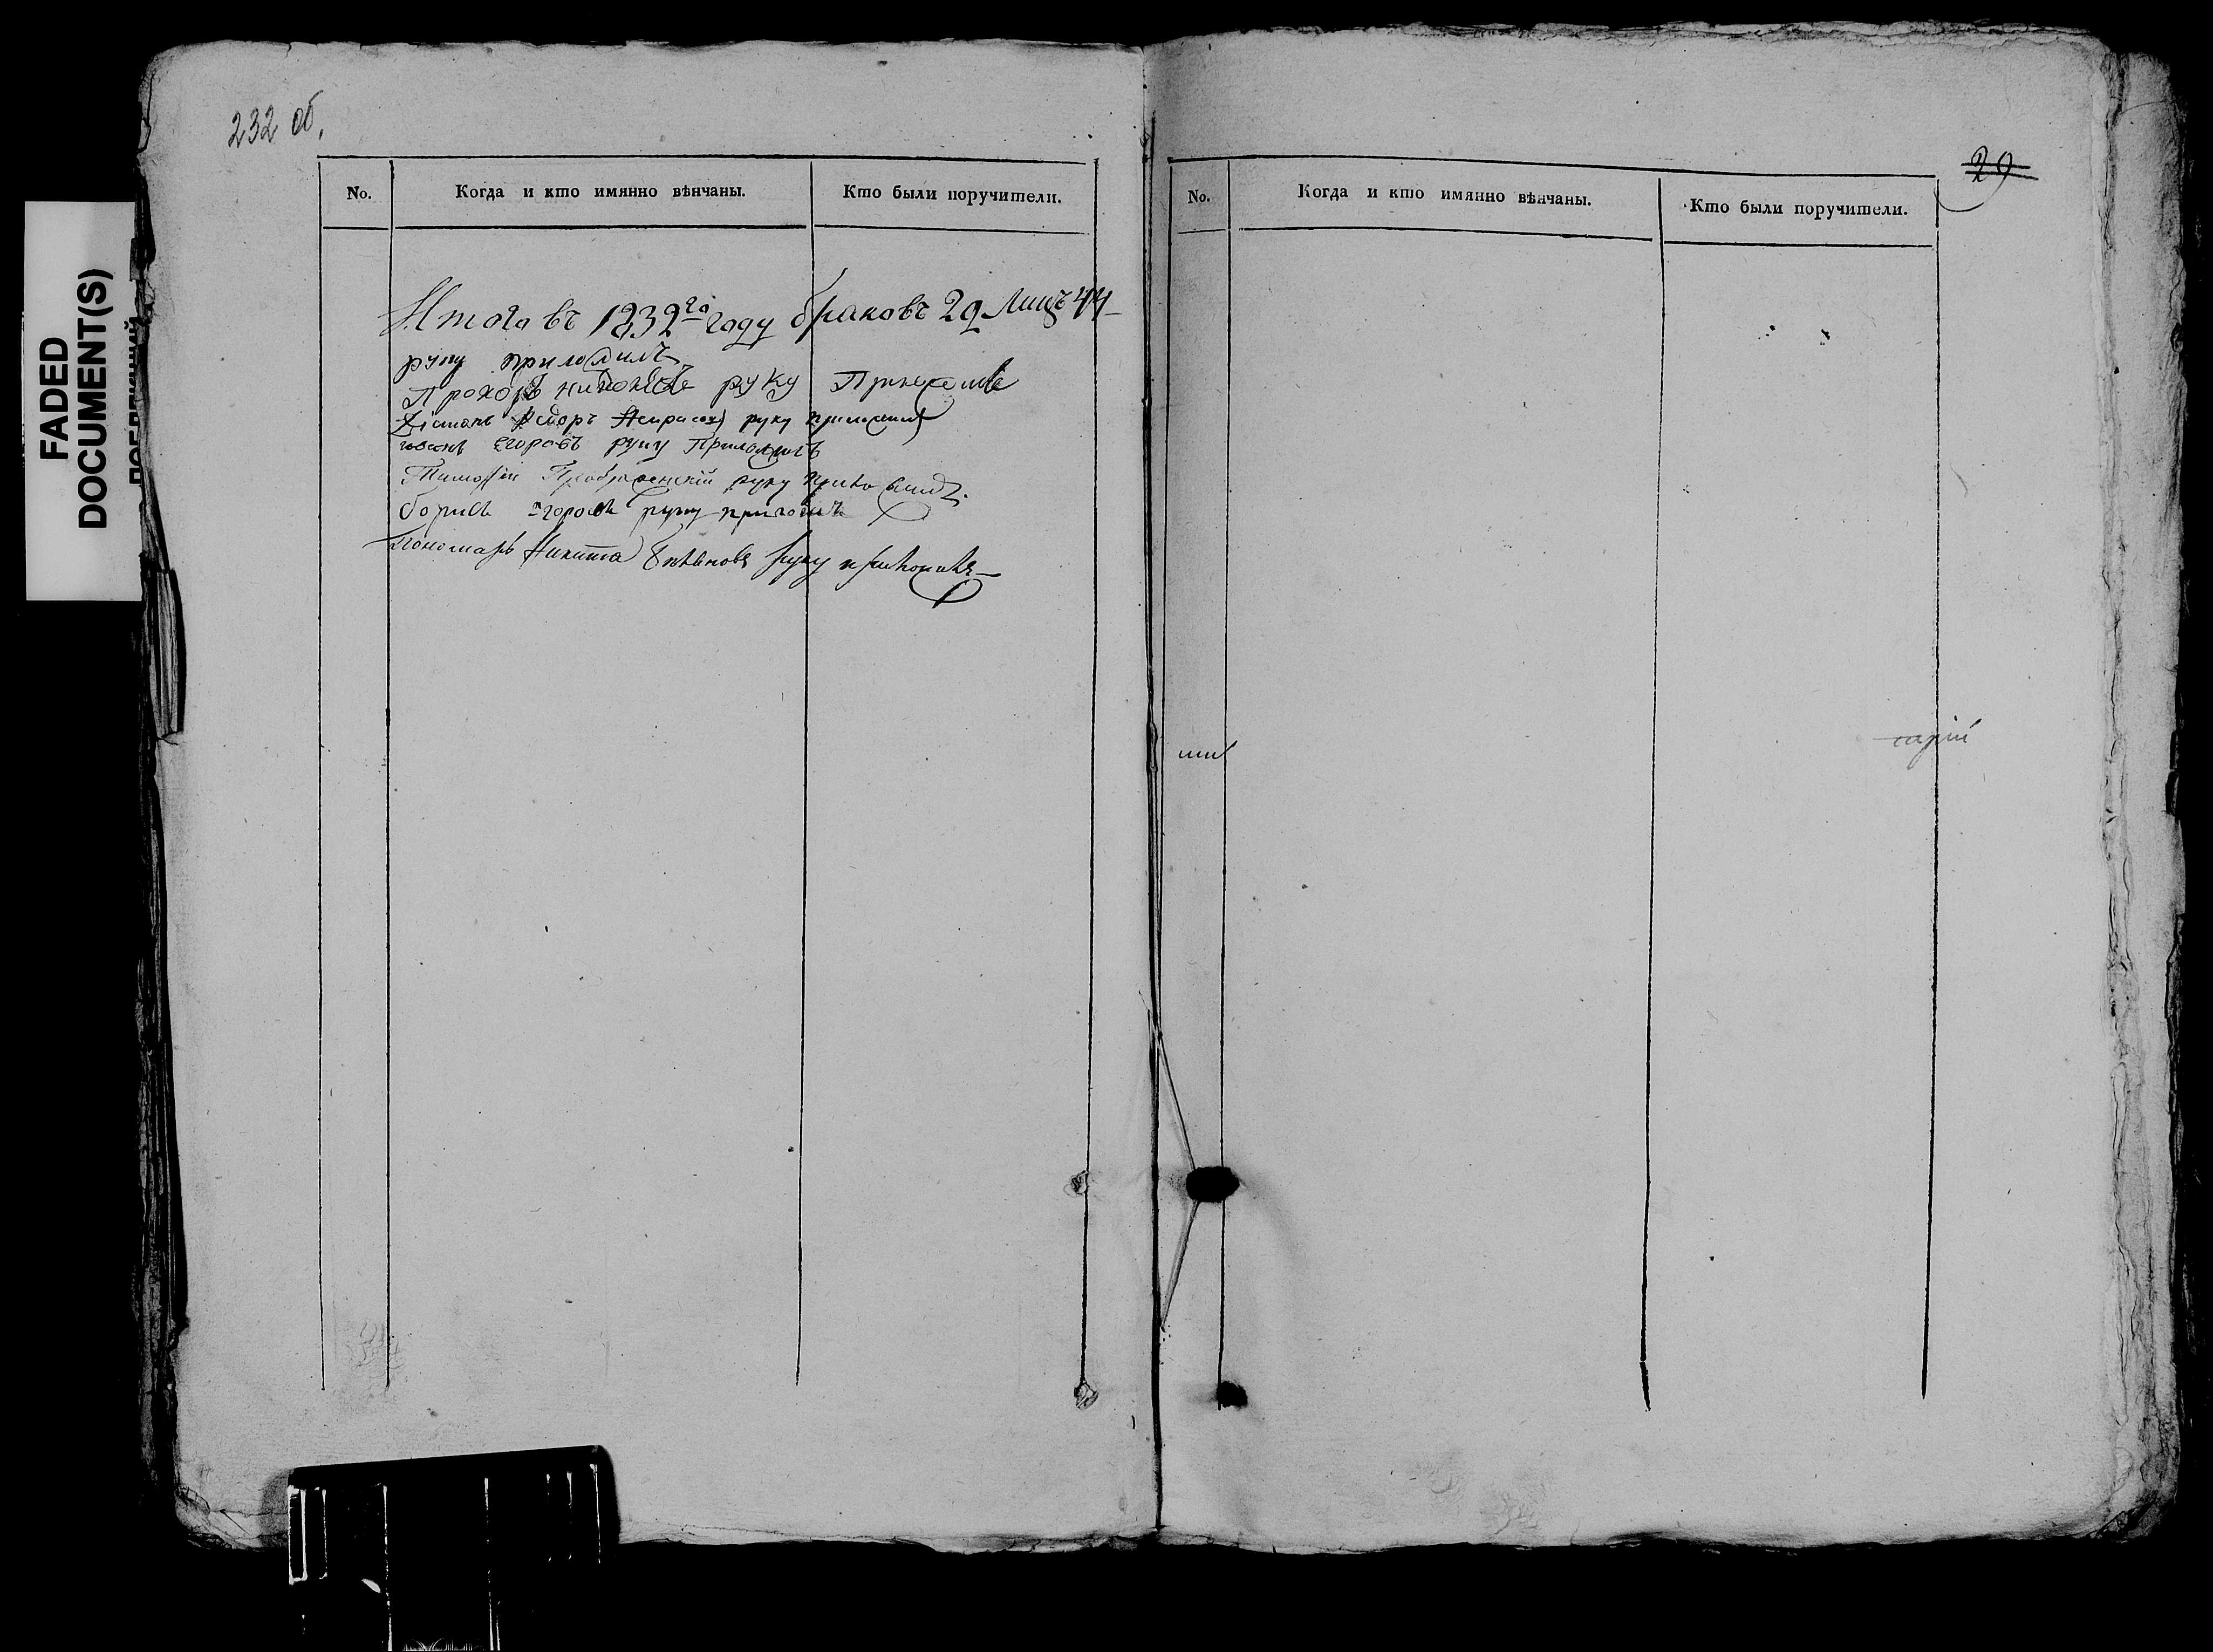 232 об.
FADED
DOCUMENT(S)
No. Когда и кто имянно вѣнчаны. Кто были поручители.
Итого въ 1832го году браковъ 22 Лицъ 44
руку приложилъ
Прохоръ руку Приложилъ
Діаконъ Ѳедоръ Некрасовъ руку приложилъ
Егоровъ руку Приложилъ
Тимоѳей Преображенскій руку приложилъ
борисъ егоровъ руку приложилъ
Пономарь Никита руку приложилъ
29
No. Когда и кто имянно вѣнчаны. Кто были поручители.
тарій